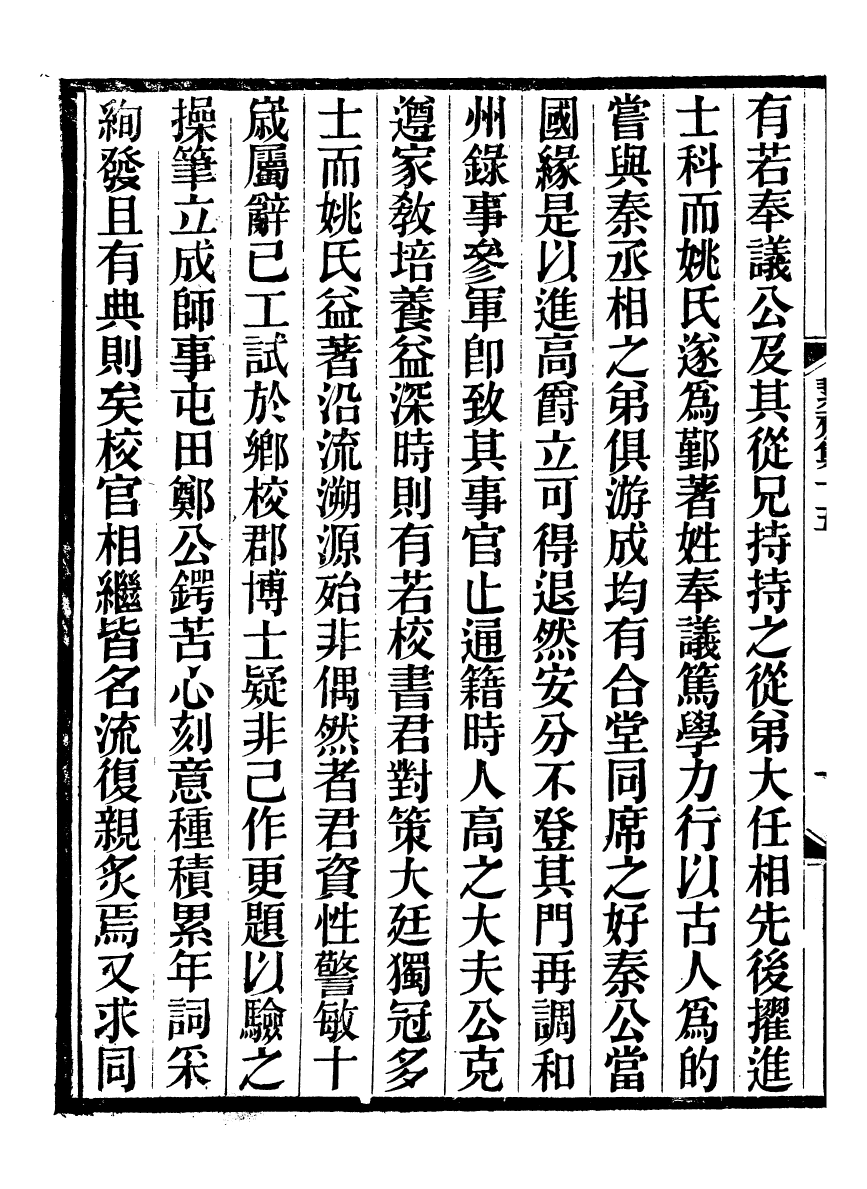 有若奉議公及其從兄持持之從弟大任相先後擢進
士科而姚氏遂爲鄞著姓奉議篤學力行以古人爲的
嘗與秦丞相之弟俱游成均有合堂同席之好秦公當
國緣是以進高爵立可得退然安分不登其門再調和
州錄事參軍卽致其事官止通籍時人高之大夫公克
遵家敎培養益深時則有若校書君對策大廷獨冠多
士而姚氏益著沿流溯源殆非偶然者君資性警敏十
歲屬辭已工試於鄉校郡博士疑非己作更題以驗之
操筆立成師事屯田鄭公鍔苦心刻意種積累年詞采
絢發且有典則矣校官相繼皆名流復親炙焉又求同